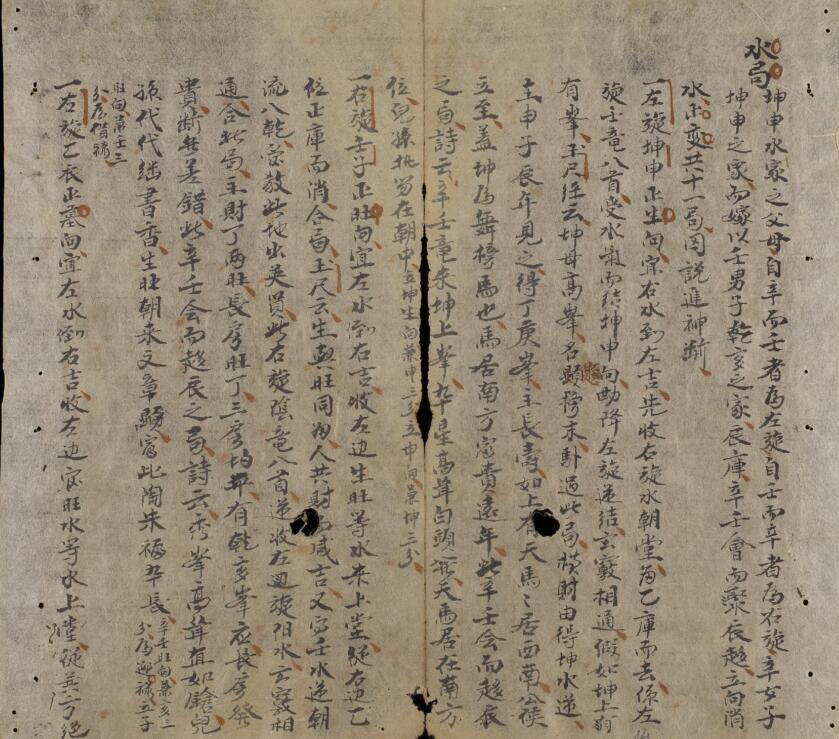 水局
坤申水家之父母自辛而壬者為左旋自壬而辛者為右旋辛女子
坤申之家而嫁以壬男子乾亥之家辰庫辛壬會而聚辰趍立向消
水正变共十一局図説進神断
一左旋坤申正生向宜右水到左吉先收右旋水朝堂為乙庫而去係左
旋壬竜八首受水氣而結坤申向助降左旋逆結玄竅相通假如坤上狗
有峯玉尺経云坤母高峯名顯榜末卧過此局横財由得坤水逆
主申子辰年見之得丁庚峯主長壽如上有天馬〻居西南公侯
立至盖坤為舞榜馬也馬居南方富貴遠年此辛壬会而趍辰
之局詩云辛壬竜来坤上峯九十星高聳白頭 天馬居在南方
位兒孫执笏在朝中 立坤生向兼申三分立申向兼坤三分
一右旋壬子正旺向宜左水倒右吉收左边生旺等水来上堂從右边乙
位正庫而消合局玉尺云生與旺同為人共財而咸吉又寫壬水逆朝
流八乾 教此地出英員此右旋陰竜八首逆收左边旋阳水玄竅相
通合此局主財丁两旺長房旺丁三房均平有乾亥峯应長房發
貴断無差錯此辛壬会而趍辰之局詩云秀峯高聳直如鎗兒
孫代代継書香生旺朝来文章 富比陶朱福寿長 辛壬旺向兼亥三分為迎禄立子
旺向兼壬三分為借禄
一右旋乙辰正墓向宜左水倒右吉收左边官旺水等水上堂從巽方絕